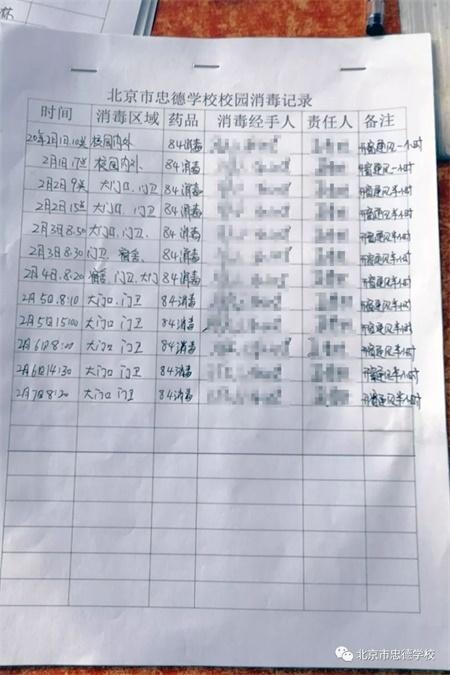 北京市忠德学校校园消毒记录
时间 消毒区域 药品 消毒经手人 责任人 备注
20年2月1日10点 校园内外 84消毒 开窗通风一小时
2月1日17点 校园内外 84消毒 开窗通风一小时
2月2日9点 大门口、门卫 84消毒 开窗通风半小时
2月2日15点 大门口、门卫 84消毒 开窗通风半小时
2月3日8:50 大门口、门卫、 84消毒 开窗通风半小时
2月3日8:30 门卫、宿舍、 84消毒 开窗通风半小时
2月4日8:20 宿舍、门卫、大门 84消毒 开窗通风半小时
2月5日8:10 大门口、门卫 84消毒 开窗通风半小时
2月5日15:00 大门口、门卫 84消毒 开窗通风半小时
2月6日8:00 大门口 门卫 84消毒 开窗通风半小时
2月6日14:30 大门口 门卫 84消毒 开窗通风半小时
2月7日8:20 大门口 门卫 84消毒 开窗通风半小时
北京市忠德学校